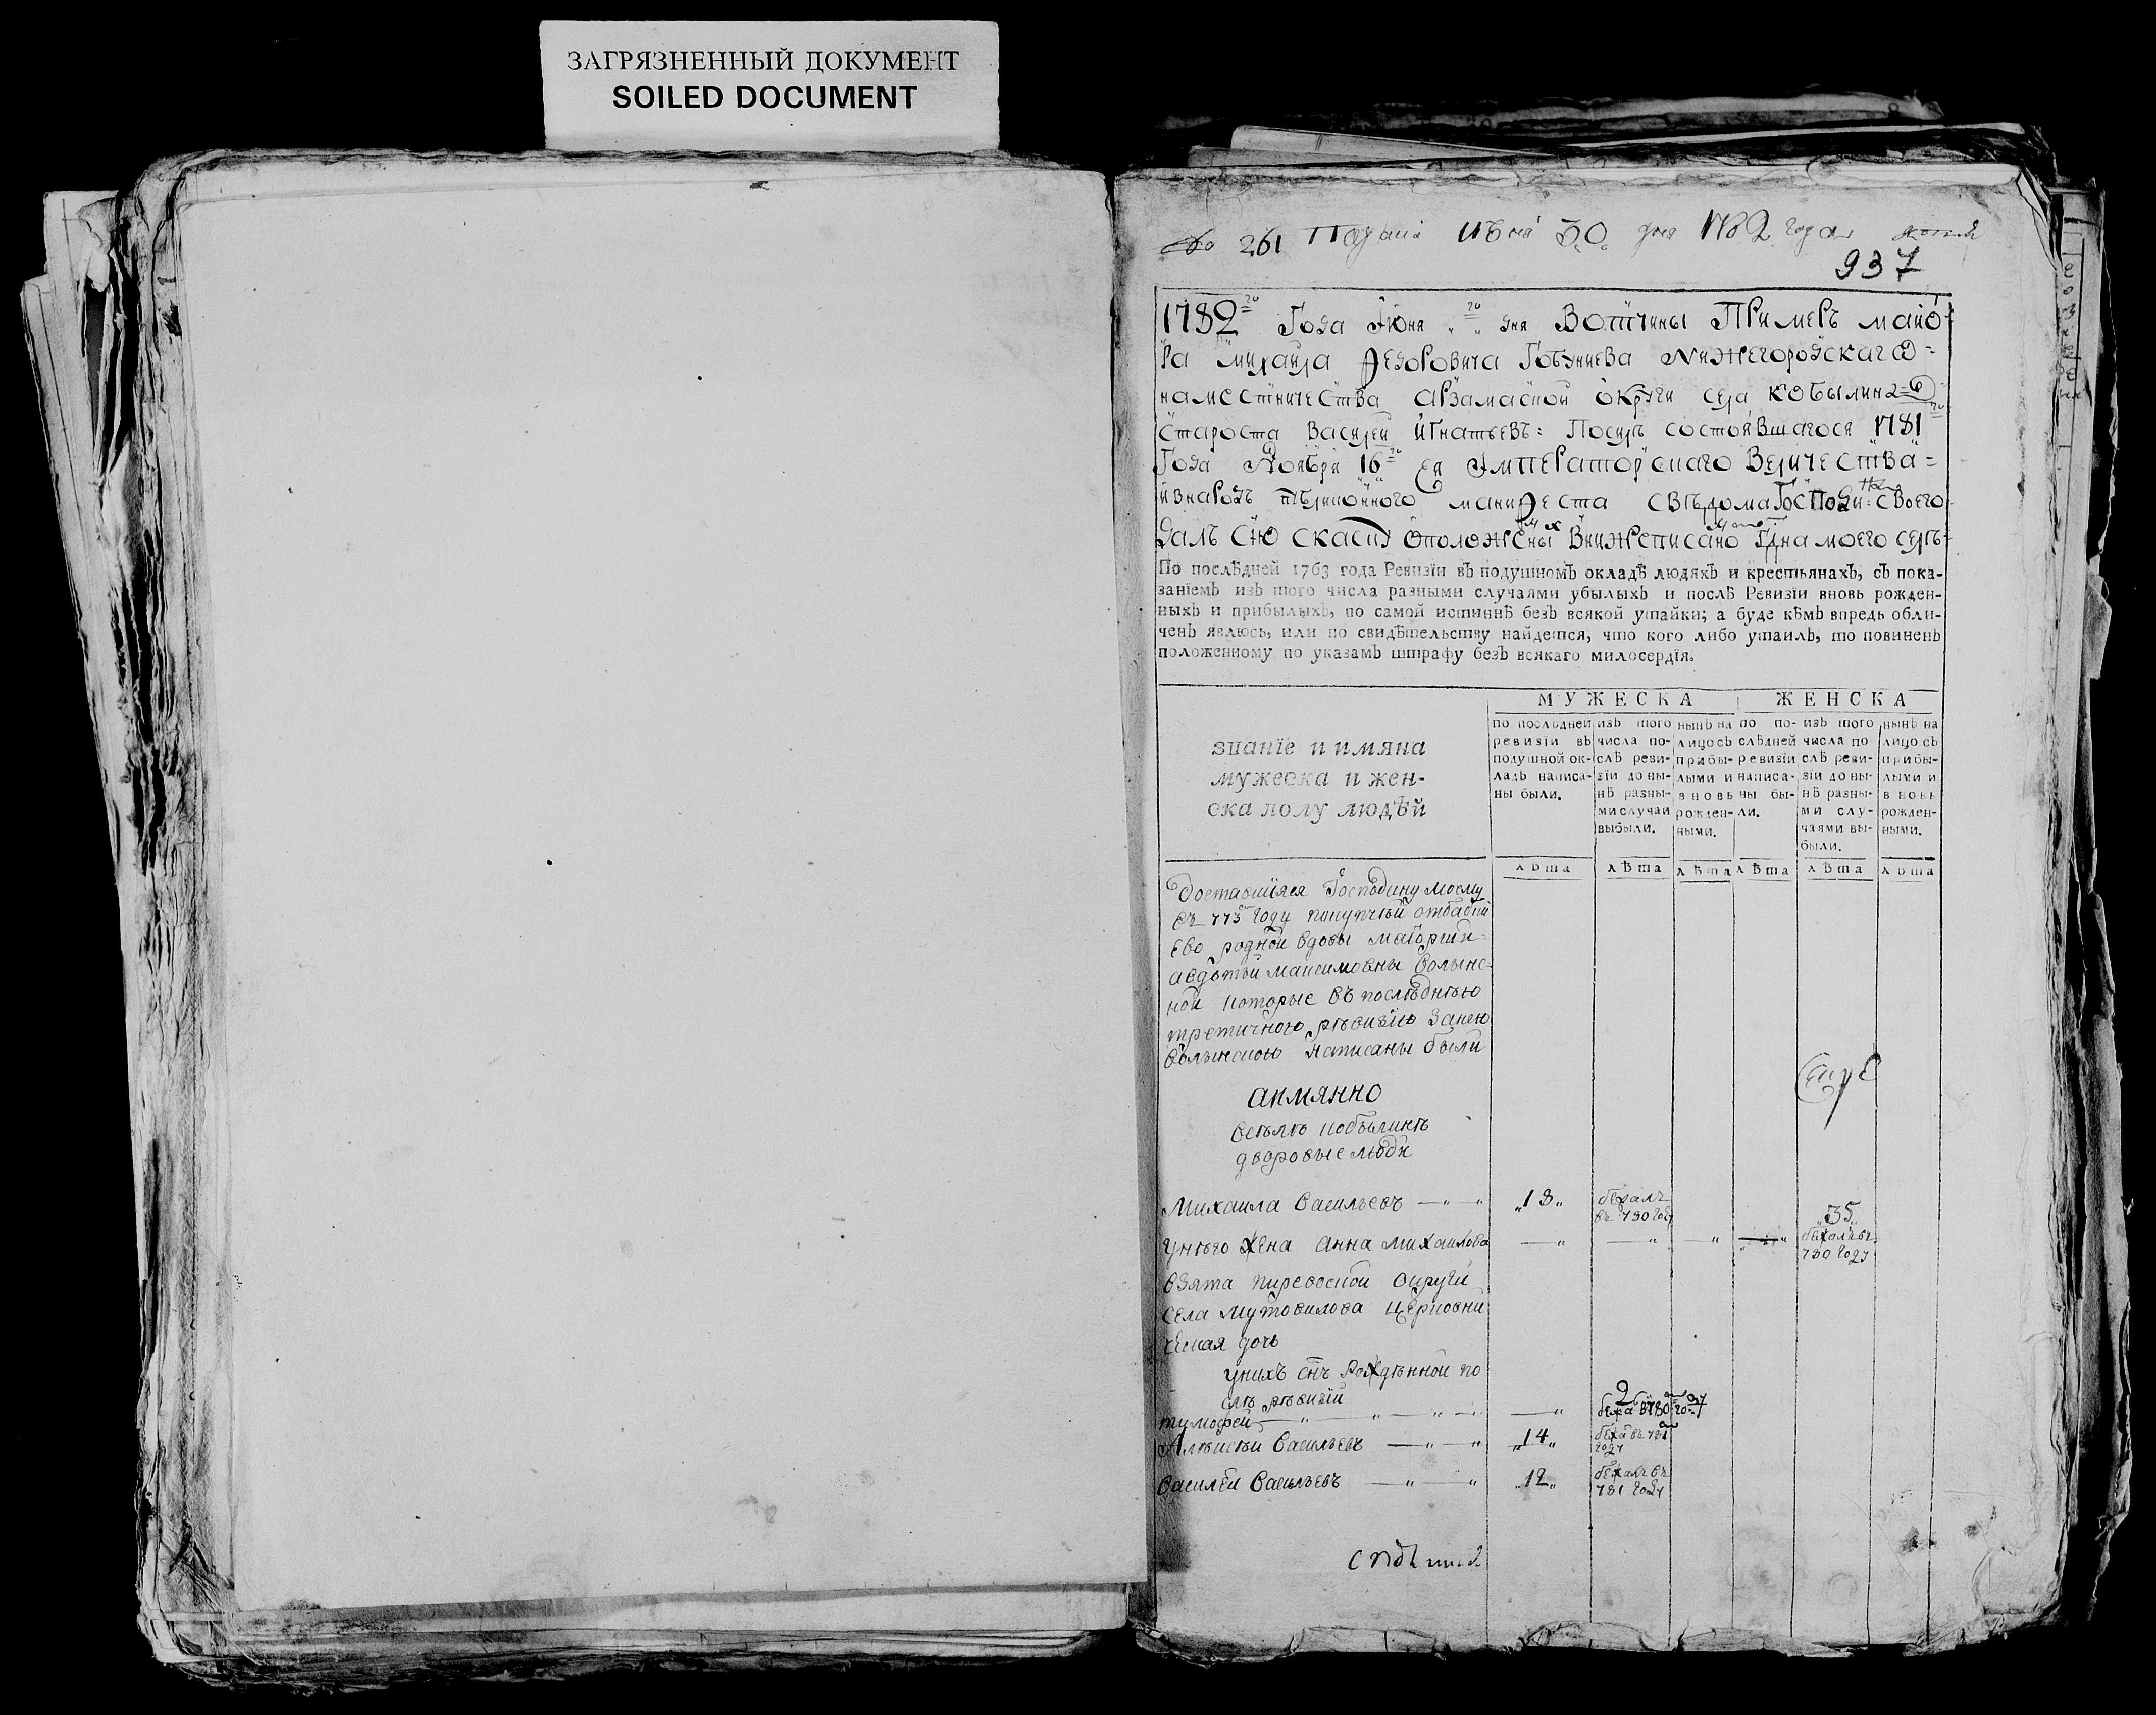 ЗАГРЯЗНЕННЫЙ ДОКУМЕНТ
SOILED DOCUMENT
261 Подана 30 дня 1782 года
937
1782 го Года Июня го дня Вотчины Примеръ маио-
ра михаила Федоровича Нижегородскаго
наместничества арзамаской округи села кобылина
Староста Василеи игнатьевъ: Посиле состоявшагося 1781 го
Года Ноября 16 го ея Императорскаго Величества
манифеста своего
далъ сию скаску Оположеных Внижеписано моего
По послѣдней 1763 года Ревизїи въ подушномъ окладѣ людяхъ и крестьянахъ, съ пока-
занїемъ изъ того числа разными случаями убылыхъ и послѣ Ревизїи вновь рожден-
ныхъ и прибылыхъ, по самой истиннѣ безъ всякой утайки; а буде кѣмъ впредь обли-
ченъ явлюсь, или по свидѣтельству найдется, что кого либо утаилъ, то повиненъ
положенному по указамъ штрафу безъ всякаго милосердїя.
МУЖЕСКА
ЖЕНСКА
знанїе и имяна
мужеска и жен-
ска полу людѣй
по послѣдней
ревизїи въ
подушной ок-
ладъ написа-
ны были.
изъ того
числа по-
слѣ реви-
зїи до ны-
нѣ разны-
ми случаи
выбыли.
нынѣ на
лицо съ
прибы-
лыми и
вновь
рожден-
ными.
по по-
слѣдней
ревизїи
написа-
ны бы-
ли.
изъ того
числа по
слѣ реви-
зїи до ны-
нѣ разны-
ми слу-
чаями вы-
были.
нынѣ на
лицо съ
прибы-
лыми и
вновь
рожден-
ными.
лѣта лѣта лѣта лѣта лѣта лѣта
доставшїяся Господину моему
въ 773 году покупкой отбабки
ево родной вдовы маїорши
авдотьи максимовны волынс-
кой которые въ последнюю
третичною ревизїю занею
волынскою написаны были
аимянно
вселѣ кобылинѣ
дворовые люди
Михаила васильевъ 18 бежалъ
въ 780 году
35
унего жена анна михаилова бежала въ
780 году
взята округи
села мутовилова церковни
ческая дочь
унихъ снъ рожденной по
слѣ ревизїи
тимофей 2
бежа в 780 году
Алѣксѣи васильевъ 14 бежа въ 781
году
василеи васильевъ 12 бежалъ въ
781 году